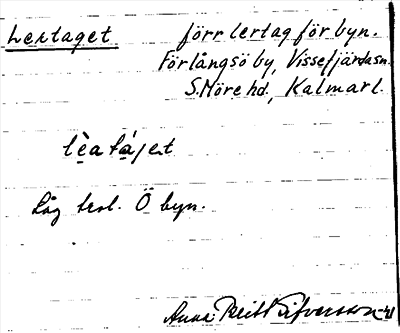 Lertaget förr lertag för byn.
Förlångsö by, Vissefjärda sn.
S. Möre hd., Kalmar l.
lèatájet
Låg trol. Ö byn.
Anna Britt Sifversson